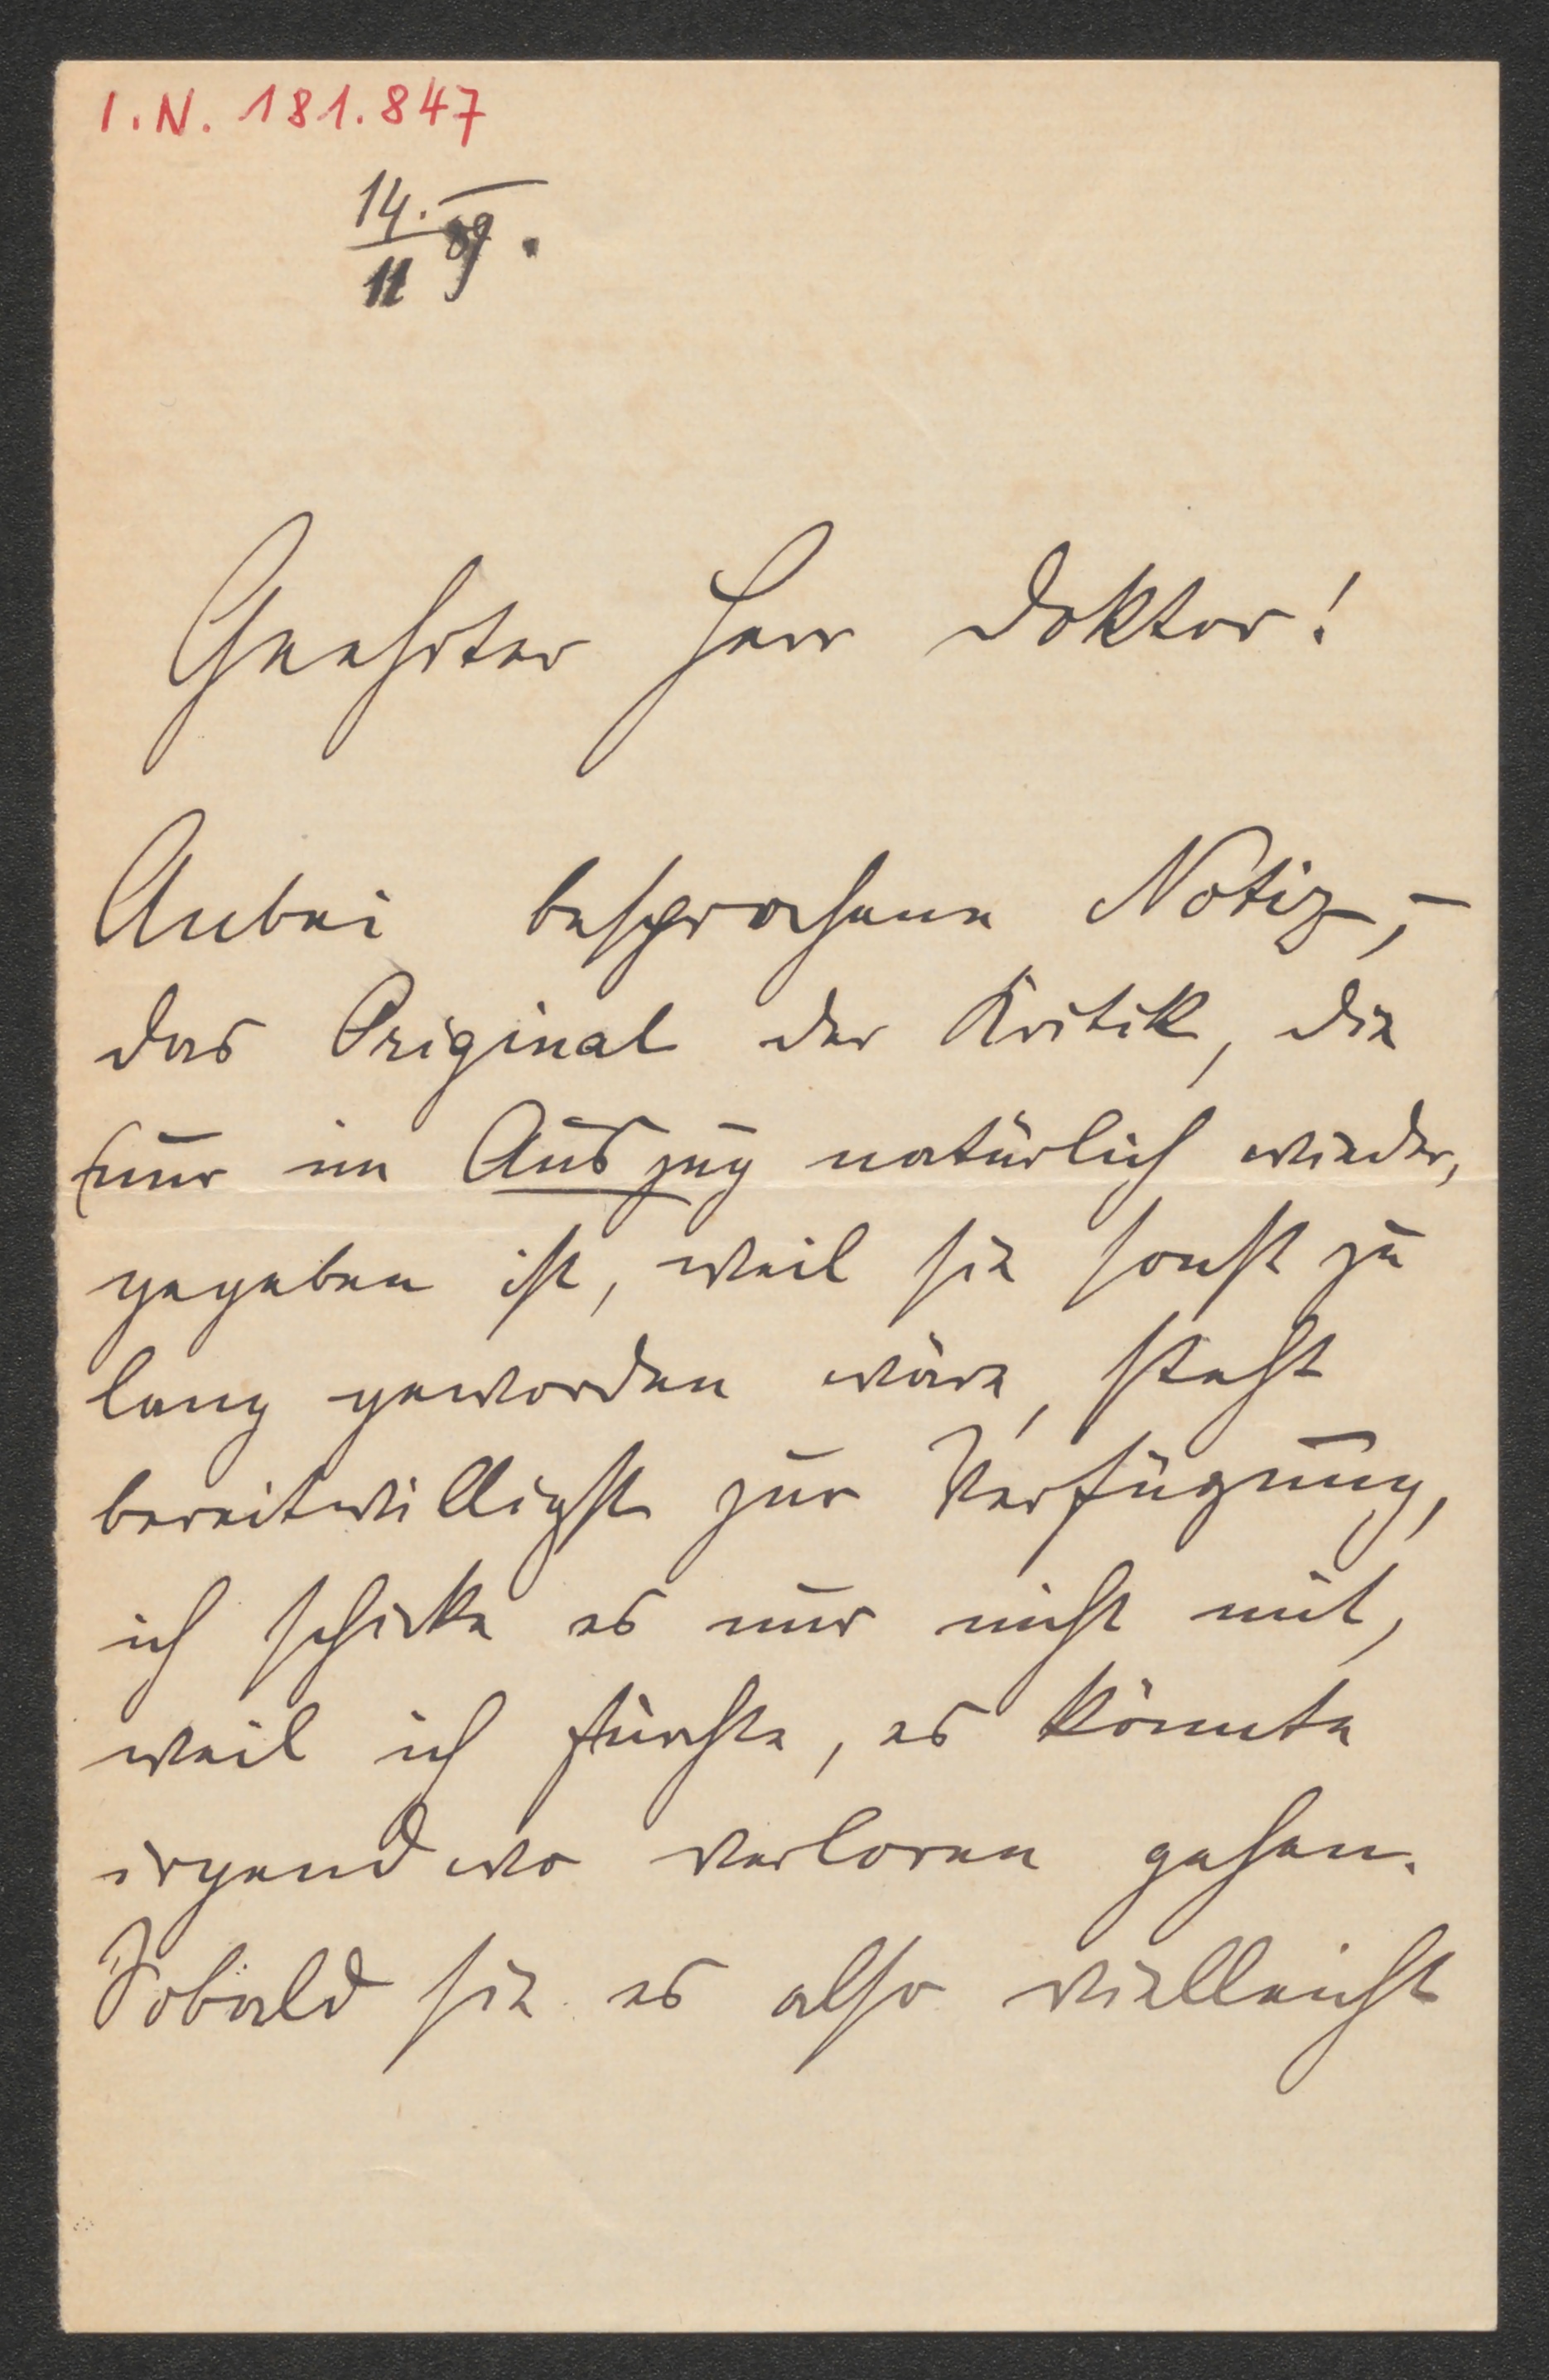 I.N. 181.847
14. 89.
11
Geehrter Herr Doktor!
Anbei besprochene Notiz, –
das Original der Kritik, die
(nur im Auszug natürlich wieder,
gegeben ist, weil sie sonst zu
lang geworden wäre, steht
bereitwilligst zur Verfügung,
ich schicke es nur nicht mit,
weil ich fürchte, es könnte
irgendwo verloren gehen.
Sobald sie es also vielleicht